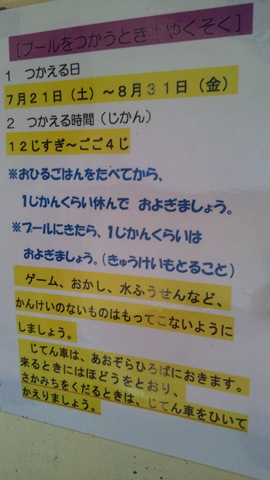 [プールをつかうときのやくそく]
1 つかえる日
7月21日(土)～8月31日(金)
2 つかえる時間(じかん)
12じすぎ～ごご4じ
※おひるごはんをたべてから、
1じかんくらい休んで およぎましょう。
※プールにきたら、1じかんくらいは
およぎましょう。(きゅうけいもとること)
ゲーム、おかし、水ふうせんなど、
かんけいのないものはもってこないように
しましょう。
じてん車は、あおぞらひろばにおきます。
来るときにはほどうをとおり、
さかみちをくだるときは、じてん車をひいて
かえりましょう。